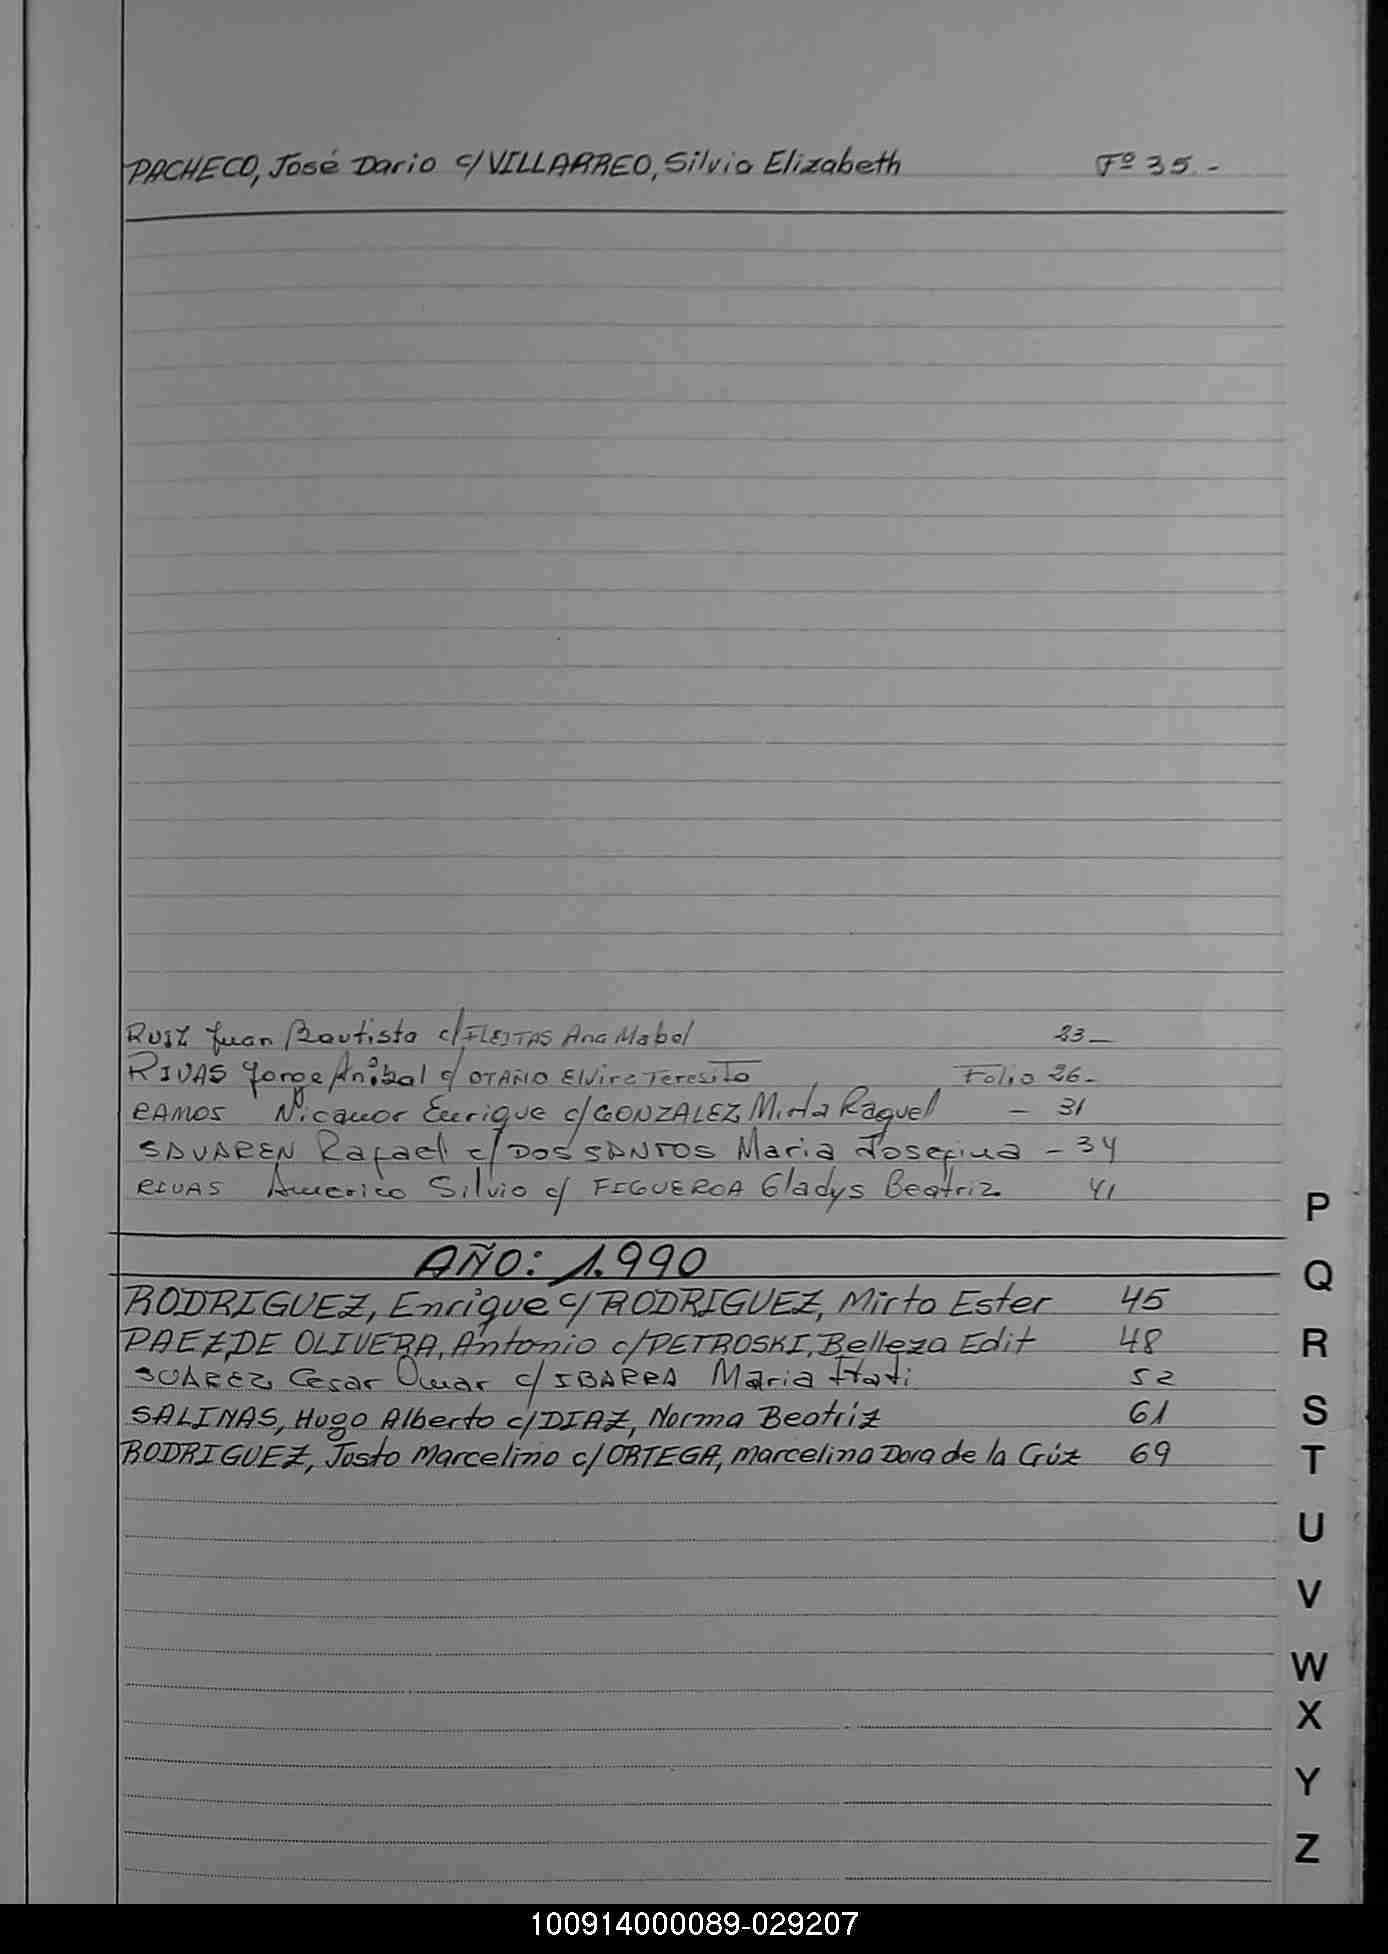 PACHECO, José Dario c/ VILLARREO, Silvia Elizabeth Fº 35.-
RUIZ Juan Bautista c/ FLEITAS Ana Mabel 23_
RIVAS Jorge Anibal c/ OTAÑO Elvira Teresita Folio 26-
RAMOS Nicanor Enrique c/ GONZALEZ, Mirta Raquel - 31
SAVAREN Rafael c/ DOS SANTOS Maria Josefina - 34
RIVAS Americo Silvio c/ FIGUEROA Gladys Beatriz 41
AÑO: 1.990
RODRIGUEZ, Enrique c/ RODRIGUEZ, Mirta Ester 45
PAEZ, DE OLIVERA, Antonio c/ PETROSKI, Belleza Edit 48
SUAREZ, Cesar Omar c/ IBARRA Maria Itati 52
SALINAS, Hugo Alberto c/ DIAZ, Norma Beatriz 61
RODRIGUEZ, Justo Marcelino c/ ORTEGA, Marcelina Dora de la Crúz 69
P
Q
R
S
T
U
V
W
X
Y
Z
100914000089-029207